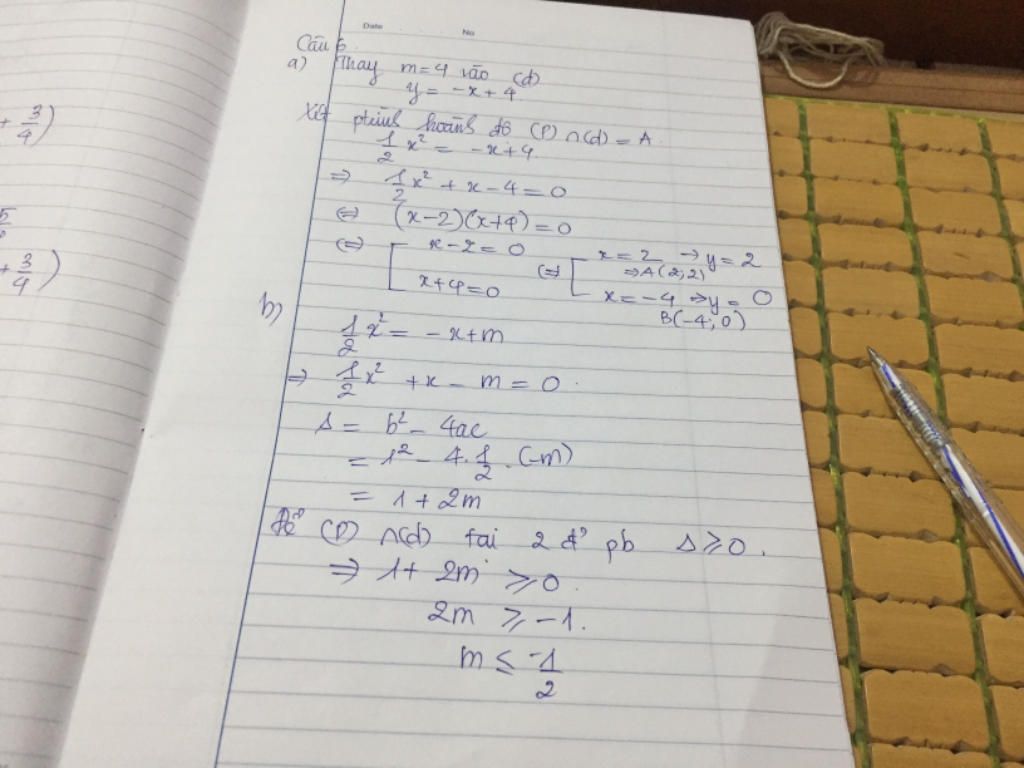 Date No
+ 3/4)
5/2
+ 3/4)
Câu 5
a) Thay m=4 vào (d)
y = -x+4.
Xét ptrình hoành độ (P) ∩(d) = A
1/2 x² = -x+4.
=> 1/2 x² + x - 4 = 0
(=) (x-2)(x+4) = 0
(=) [ x-2=0 (=) [ x=2 → y=2
=> A(2;2)
x+4=0 x=-4 → y= 0
B(-4;0)
b)
1/2 x² = -x+m
=> 1/2 x² + x - m = 0.
Δ = b² - 4ac
= 1² - 4.1/2.(-m)
= 1 + 2m
Để (P) ∩(d) tại 2 đ' pb Δ ≥ 0.
=> 1 + 2m ≥ 0.
2m ≥ -1.
m ≤ -1/2